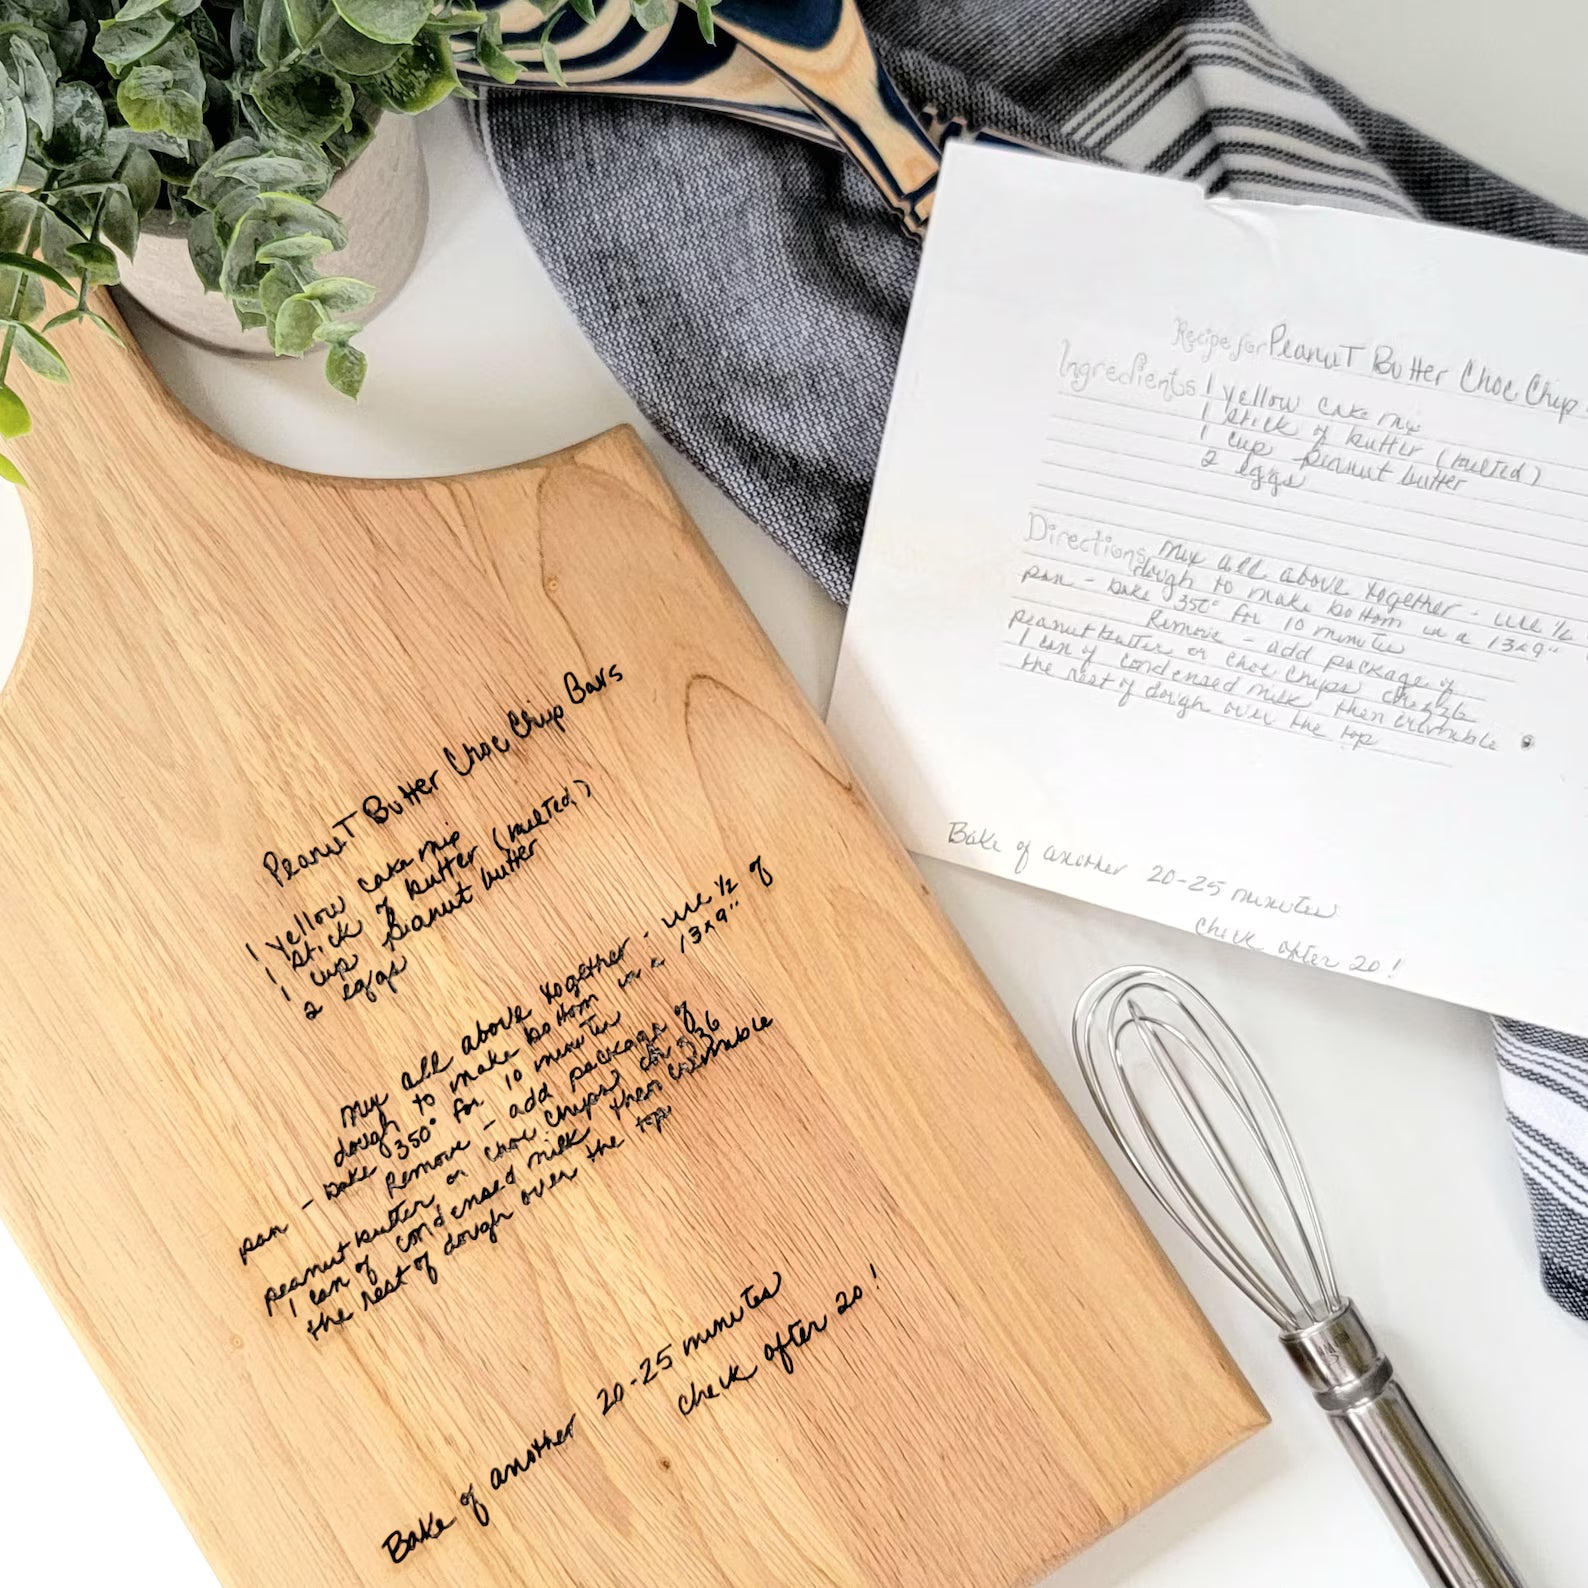 Peanut Butter Choc Chip Bars
1 yellow cake mix
1 stick of butter (melted)
1 cup peanut butter
2 eggs
Mix all above together - use 1/2 of
dough to make bottom in a 13x9"
pan - bake 350° for 10 minutes
Remove - add package of
peanut butter or choc chips drizzle
1 can of condensed milk then crumble
the rest of dough over the top
Bake of another 20-25 minutes
check after 20!
Recipe for Peanut Butter Choc Chip
Ingredients 1 yellow cake mix
1 stick of butter (melted)
1 cup peanut butter
2 eggs
Directions Mix all above together - use 1/2
dough to make bottom in a 13x9"
pan - bake 350° for 10 minutes
Remove - add package of
peanut butter or choc chips drizzle
1 can of condensed milk then crumble
the rest of dough over the top
Bake of another 20-25 minutes
check after 20!